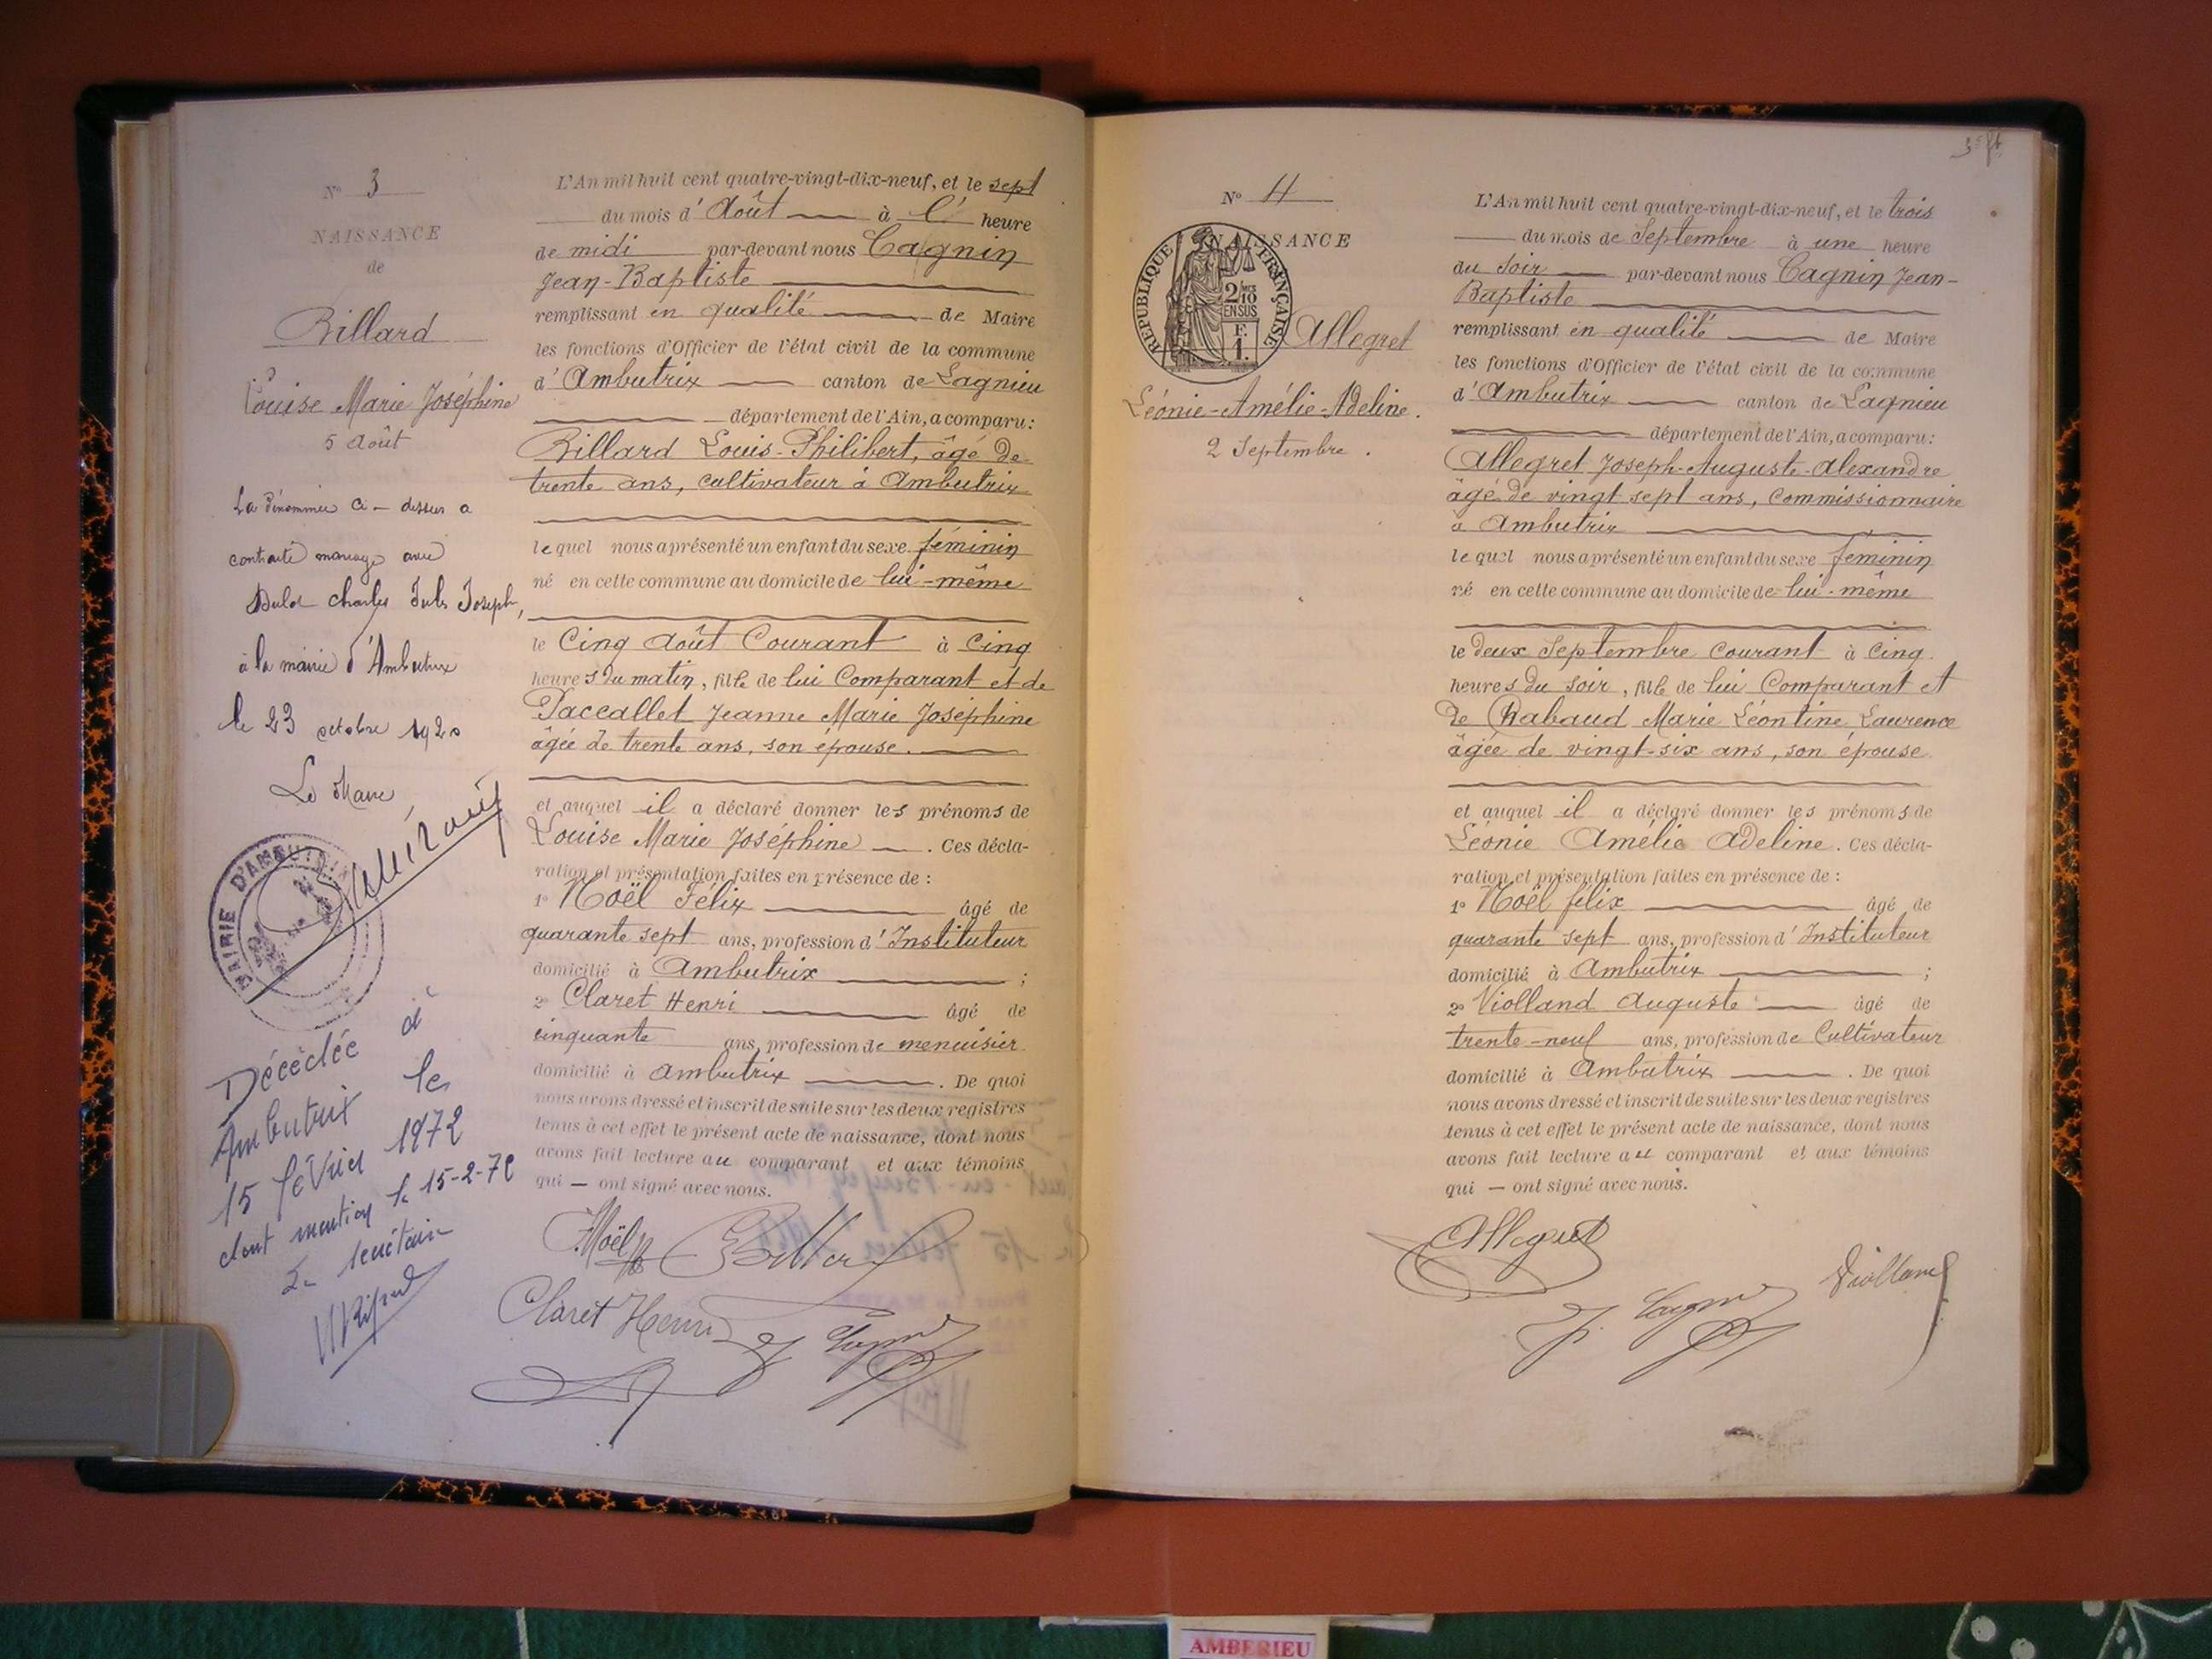 N° 3
NAISSANCE
de
Billard
Louise Marie Joséphine
5 Août
La dénommée ci-dessus a
contracté mariage avec
charles Jules Joseph,
à la mairie d'Ambutrix
le 23 octobre 1920
Le Maire
MAIRIE D'AMBUTRIX
Décédée à
Ambutrix le
15 février 1972
dont mention le 15-2-72
Le secrétaire
L'An mil huit cent quatre-vingt-dix-neuf, et le sept
du mois d'Août à l' heure
de midi par-devant nous Cagnin
Jean-Baptiste
remplissant en qualité de Maire
les fonctions d'Officier de l'état civil de la commune
d'Ambutrix canton de Lagnieu
département de l'Ain, a comparu:
Billard Louis-Philibert, âgé de
trente ans, cultivateur à Ambutrix
lequel nous a présenté un enfant du sexe féminin
né en cette commune au domicile de lui-même
le Cinq Août Courant à Cinq
heures du matin, fille de lui Comparant et de
Paccallet Jeanne Marie Joséphine
âgée de trente ans, son épouse.
et auquel il a déclaré donner les prénoms de
Louise Marie Joséphine. Ces décla-
ration et présentation faites en présence de:
1° Noël Félix âgé de
quarante sept ans, profession d'Instituteur
domicilié à Ambutrix ;
2° Claret Henri âgé de
cinquante ans, profession de menuisier
domicilié à Ambutrix. De quoi
nous avons dressé et inscrit de suite sur les deux registres
tenus à cet effet le présent acte de naissance, dont nous
avons fait lecture au comparant et aux témoins
qui — ont signé avec nous.
Noël Billard
Claret Henri J Cagnin
3e ft
N° 4
NAISSANCE
REPUBLIQUE FRANÇAISE
2/10
EN SUS
F.
1.
Allegret
Léonie-Amélie-Adeline.
2 Septembre.
L'An mil huit cent quatre-vingt-dix-neuf, et le trois
du mois de Septembre à une heure
du Soir par-devant nous Cagnin Jean-
Baptiste
remplissant en qualité de Maire
les fonctions d'Officier de l'état civil de la commune
d'Ambutrix canton de Lagnieu
département de l'Ain, a comparu:
Allegret Joseph-Auguste-Alexandre
âgé de vingt sept ans, Commissionnaire
à Ambutrix
lequel nous a présenté un enfant du sexe féminin
né en cette commune au domicile de lui-même
le deux Septembre Courant à Cinq
heures du Soir, fille de lui Comparant et
de Rabaud Marie Léontine Laurence
âgée de vingt-six ans, son épouse
et auquel il a déclaré donner les prénoms de
Léonie Amélie Adeline. Ces décla-
ration et présentation faites en présence de:
1° Noël félix âgé de
quarante sept ans, profession d'Instituteur
domicilié à Ambutrix ;
2° Violland Auguste âgé de
trente-neuf ans, profession de Cultivateur
domicilié à Ambutrix. De quoi
nous avons dressé et inscrit de suite sur les deux registres
tenus à cet effet le présent acte de naissance, dont nous
avons fait lecture au comparant et aux témoins
qui — ont signé avec nous.
Allegret
J. Cagnin Violland
AMBERIEU